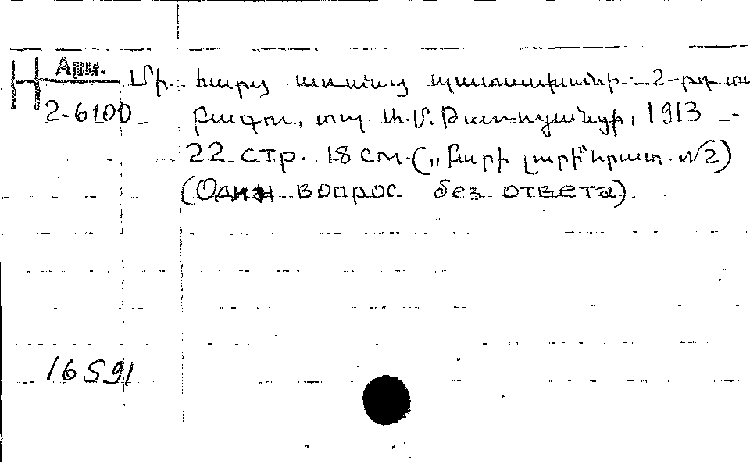 Н Арм. Մի հարց առանց պատասխանի. 2-րդ տպ
2-6100 Բագու, տպ. Ա.Մ. 1913 -
22 стр. 18 см. („Բարի լուր" հրատ. №2)
(Один вопрос без ответа).
16591